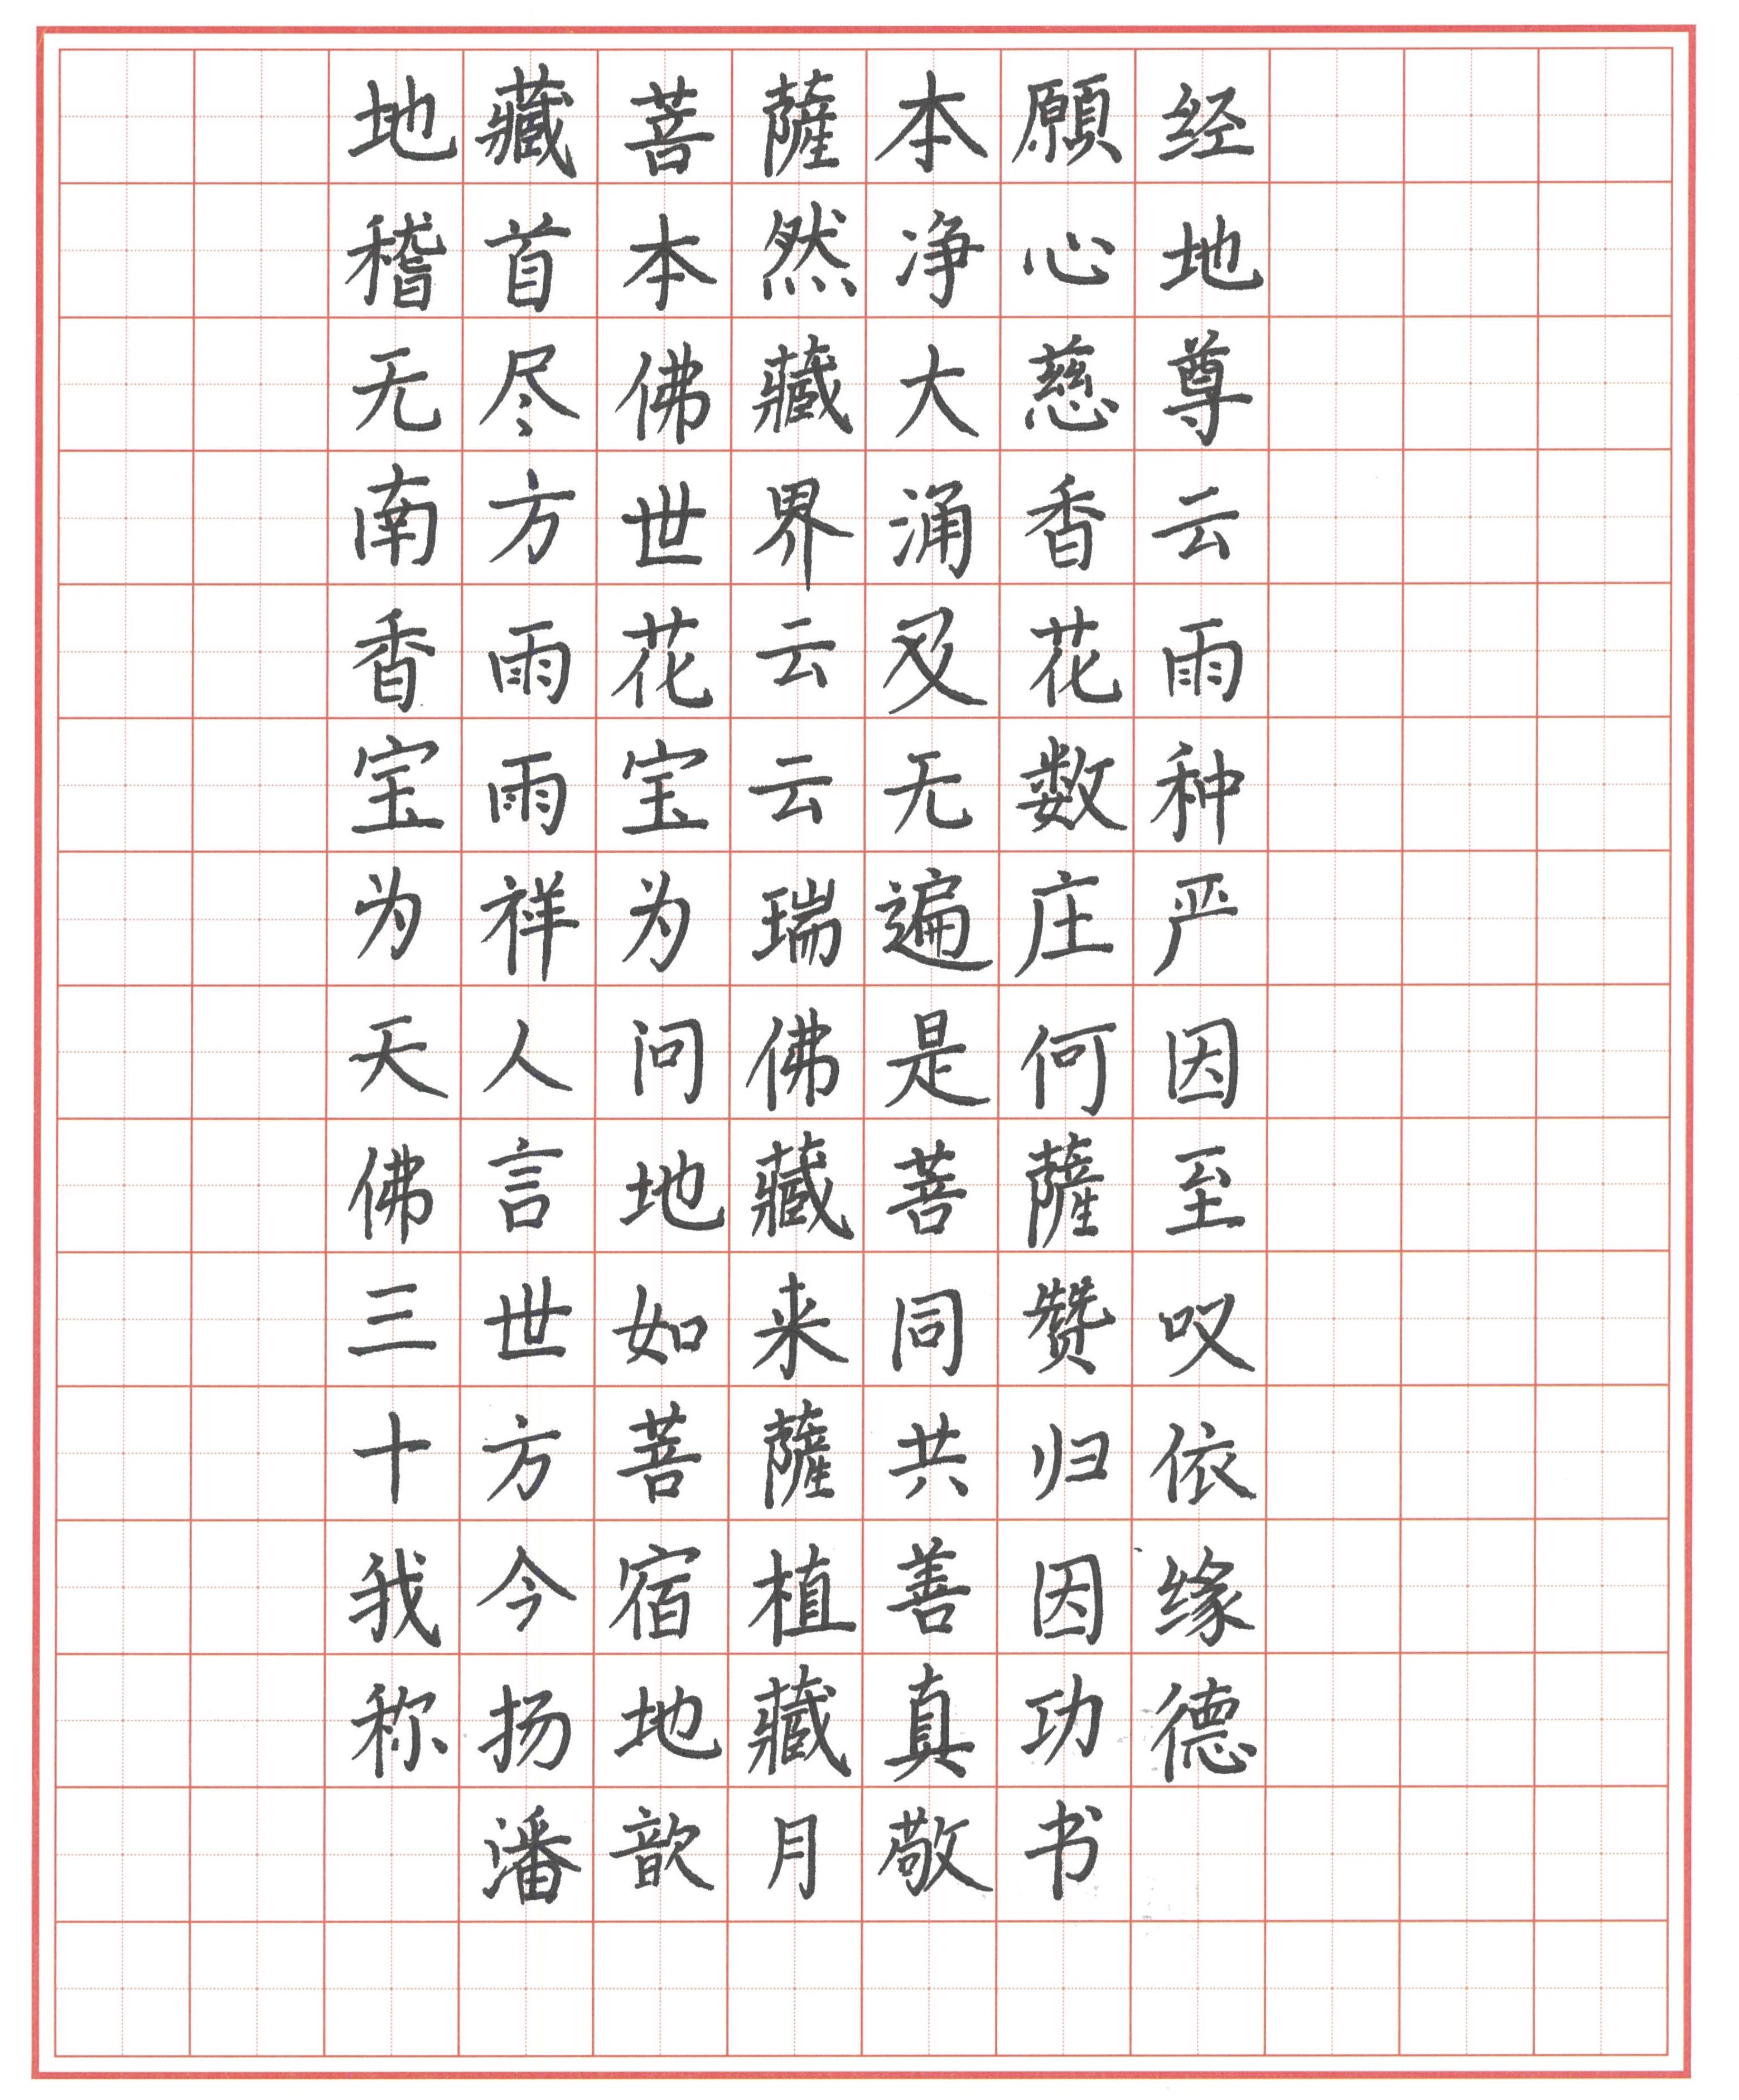 地藏菩薩本願经
稽首本然净心地
无尽佛藏大慈尊
南方世界涌香云
香雨花云及花雨
宝雨宝云无数种
为祥为瑞遍庄严
天人问佛是何因
佛言地藏菩薩至
三世如来同赞叹
十方菩薩共归依
我今宿植善因缘
称扬地藏真功德
潘歆月敬书